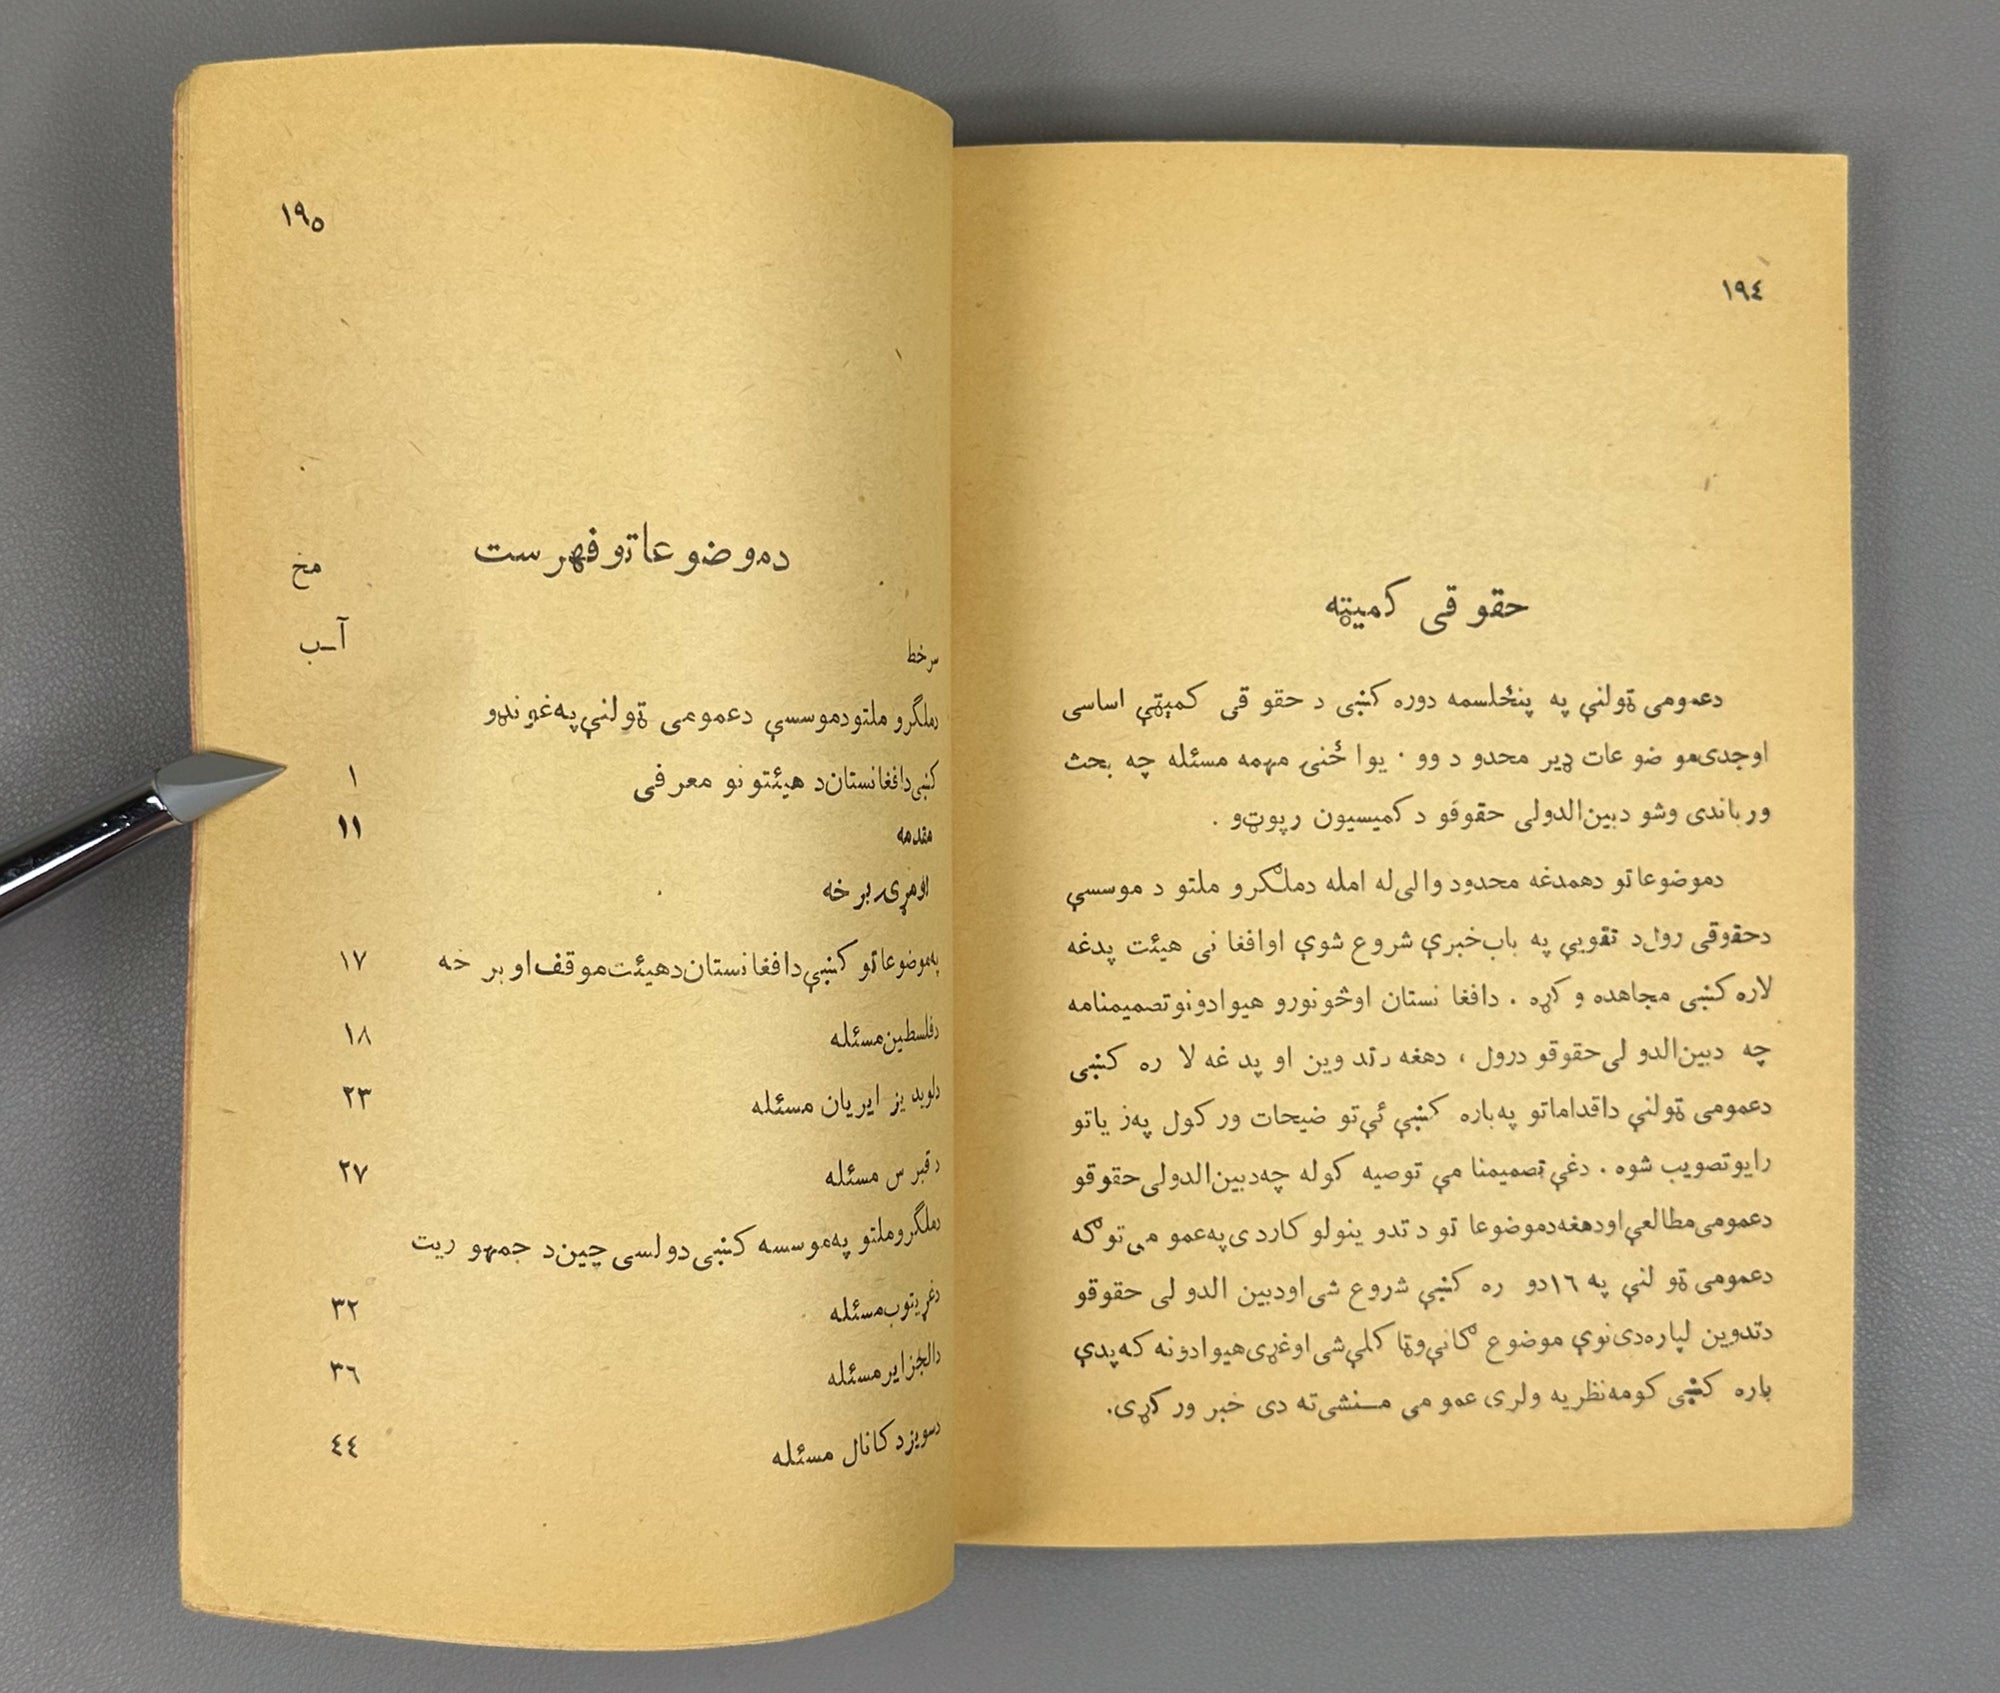 ١٩٤
حقوقی کمیټه
دعمومی ټولنې په پنځلسمه دوره کښی د حقوقی کمیټې اساسی
اوجدی موضوعات ډیر محدود وو . یوا ځنۍ مهمه مسئله چه بحث
ورباندی وشو دبین‌الدولی حقوقو د کمیسیون رپوټ و .
دموضوعاتو دهمدغه محدود والی له امله دملګرو ملتو د موسسې
دحقوقی رول د تقویې په باب خبرې شروع شوې اوافغا نی هیئت پدغه
لاره کښی مجاهده وکړه . دافغا نستان اوڅو نورو هیوادونو تصمیمنامه
چه دبین‌الدولی حقوقو درول ، دهغه د تدوین او پدغه لاره کښی
دعمومی ټولنې داقداماتو په باره کښې ئې تو ضیحات ورکول په زیاتو
رایو تصویب شوه . دغې تصمیمنا مې توصیه کوله چه دبین‌الدولی حقوقو
دعمومی مطالعې اودهغه دموضوعا تو د تدو ینولو کاردی په عمو می توګه
دعمومی ټو لنې په ١٦دو ره کښې شروع شی اودبین الدو لی حقوقو
دتدوین لپاره دی نوې موضوع ګانې وټا کلې شی اوغړی هیوادونه که پدې
باره کښی کومه نظریه ولری عمو می منشی ته دی خبر ور کړی.
١٩٥
دموضوعاتو فهرست
مخ
سرخط آ-ب
دملګرو ملتو دموسسې دعمومی ټولنې په غونډو
کښې دافغانستان د هیئتونو معرفی ١
مقدمه ١١
لومړی برخه
په موضوعاتو کښې دافغانستان دهیئت موقف او بر خه ١٧
دفلسطین مسئله ١٨
دلویدیز ایریان مسئله ٢٣
دقبرس مسئله ٢٧
دملګرو ملتو په موسسه کښی دولسی چین د جمهو ریت
دغړیتوب مسئله ٣٢
دالجزایر مسئله ٣٦
دسویز د کانال مسئله ٤٤